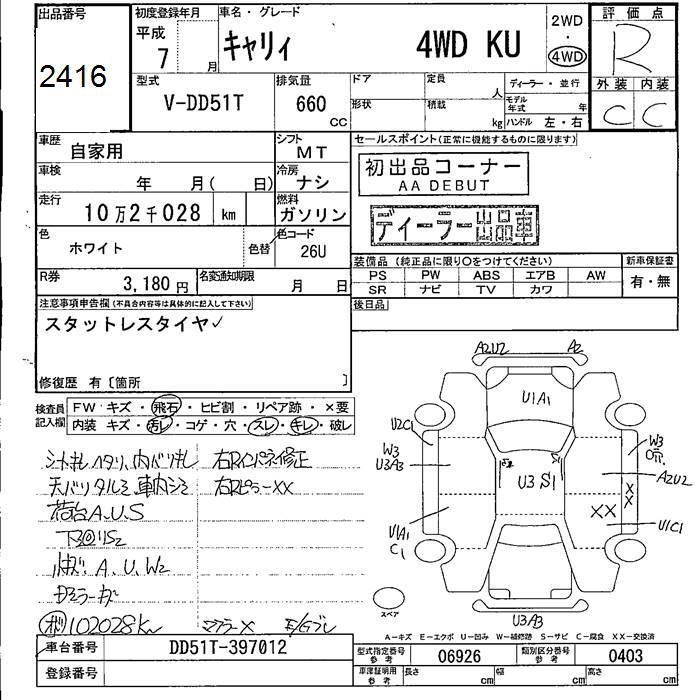 出品番号
2416
初度登録年月
平成
7 月
車名・グレード
キャリィ 4WD KU
2WD
・
4WD
評価点
R
外装 内装
C C
型式
V-DD51T
排気量
660
CC
ドア
形状
定員
人
積載
kg
ディーラー・並行
モデル年式 年
ハンドル 左・右
車歴
自家用
シフト
MT
車検
年 月( 日)
冷房
ナシ
走行
10万2千028 km
燃料
ガソリン
色
ホワイト
色替
色コード
26U
R券
3,180円
名変通知期限
月 日
セールスポイント(正常に機能するものに限ります)
初出品コーナー
AA DEBUT
ディーラー出品車
装備品(純正品に限り○をつけてください)
PS PW ABS エアB AW
SR ナビ TV カワ
新車保証書
有・無
後日品
注意事項申告欄(不具合内容等は具体的に記入して下さい)
スタットレスタイヤ✓
修復歴 有〔箇所 〕
検査員記入欄
FW キズ・飛石・ヒビ割・リペア跡・×要
内装 キズ・汚レ・コゲ・穴・スレ・キレ・破レ
右Rインパネ修正
天バリタルミ、車内シミ
右RピラーXX
荷台A.U.S
A.U.W2
102028km
マフラーX
A2U2 A2
U1A1
U2C1
W3
U3A3
U3 S1
W3
A2U2
X
X
XX
U1A1
C1
U1C1
U3A3
スペア
A-キズ E-エクボ U-凹み W-補修跡 S-サビ C-腐食 XX-交換済
車台番号
DD51T-397012
登録番号
型式指定番号
参考
06926
類別区分番号
参考
0403
車庫証明用
参考
長さ cm
幅 cm
高さ cm